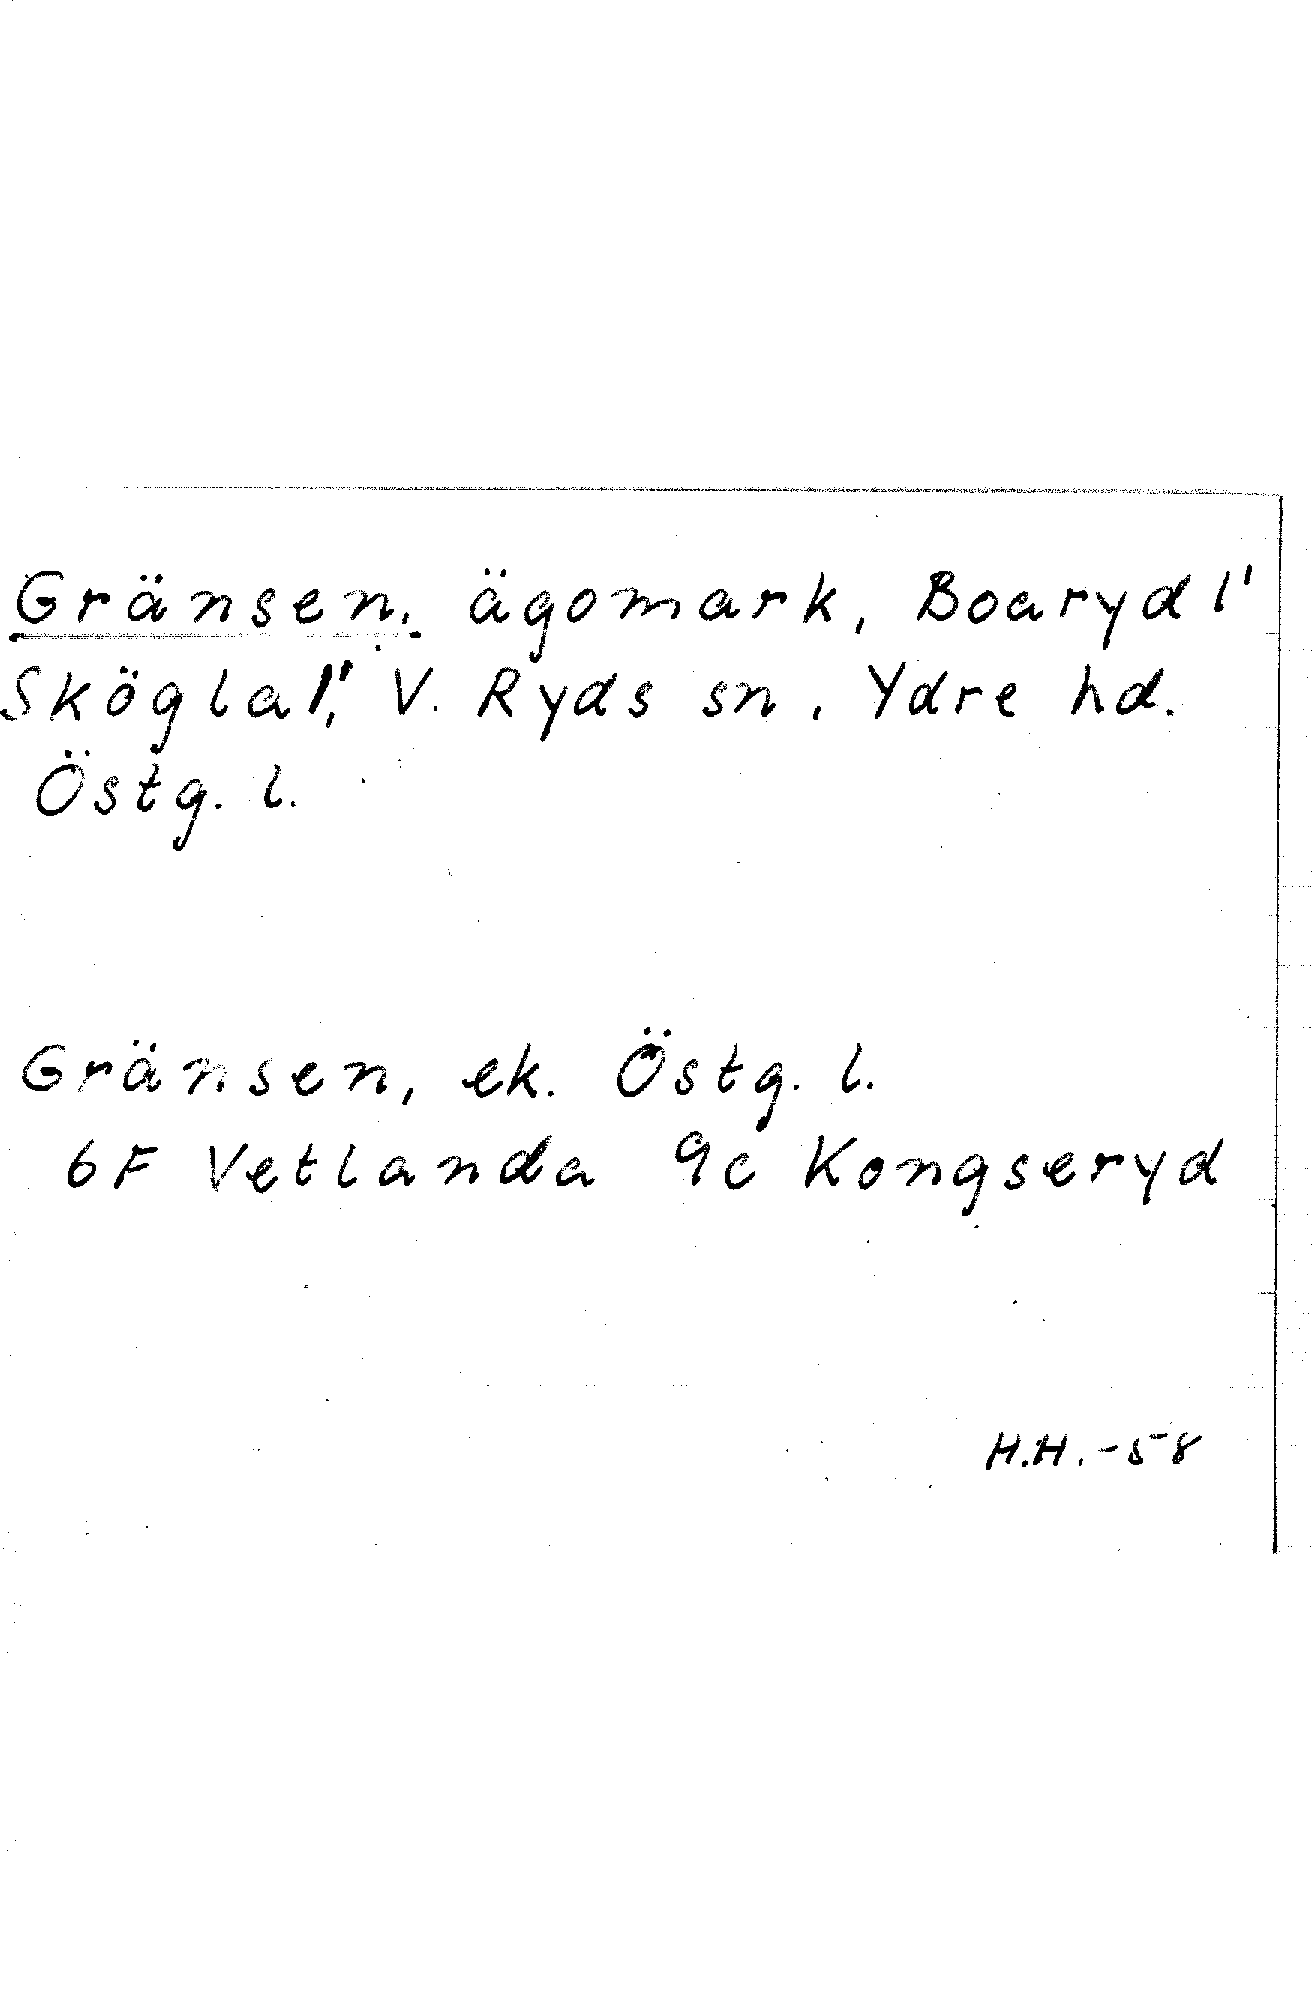 Gränsen, ägomark, Boaryd 1'
Skögla 1', V. Ryds sn, Ydre hd.
Östg. l.
Gränsen, ek. Östg. l.
6F Vetlanda 9c Kongseryd
H.H. -58